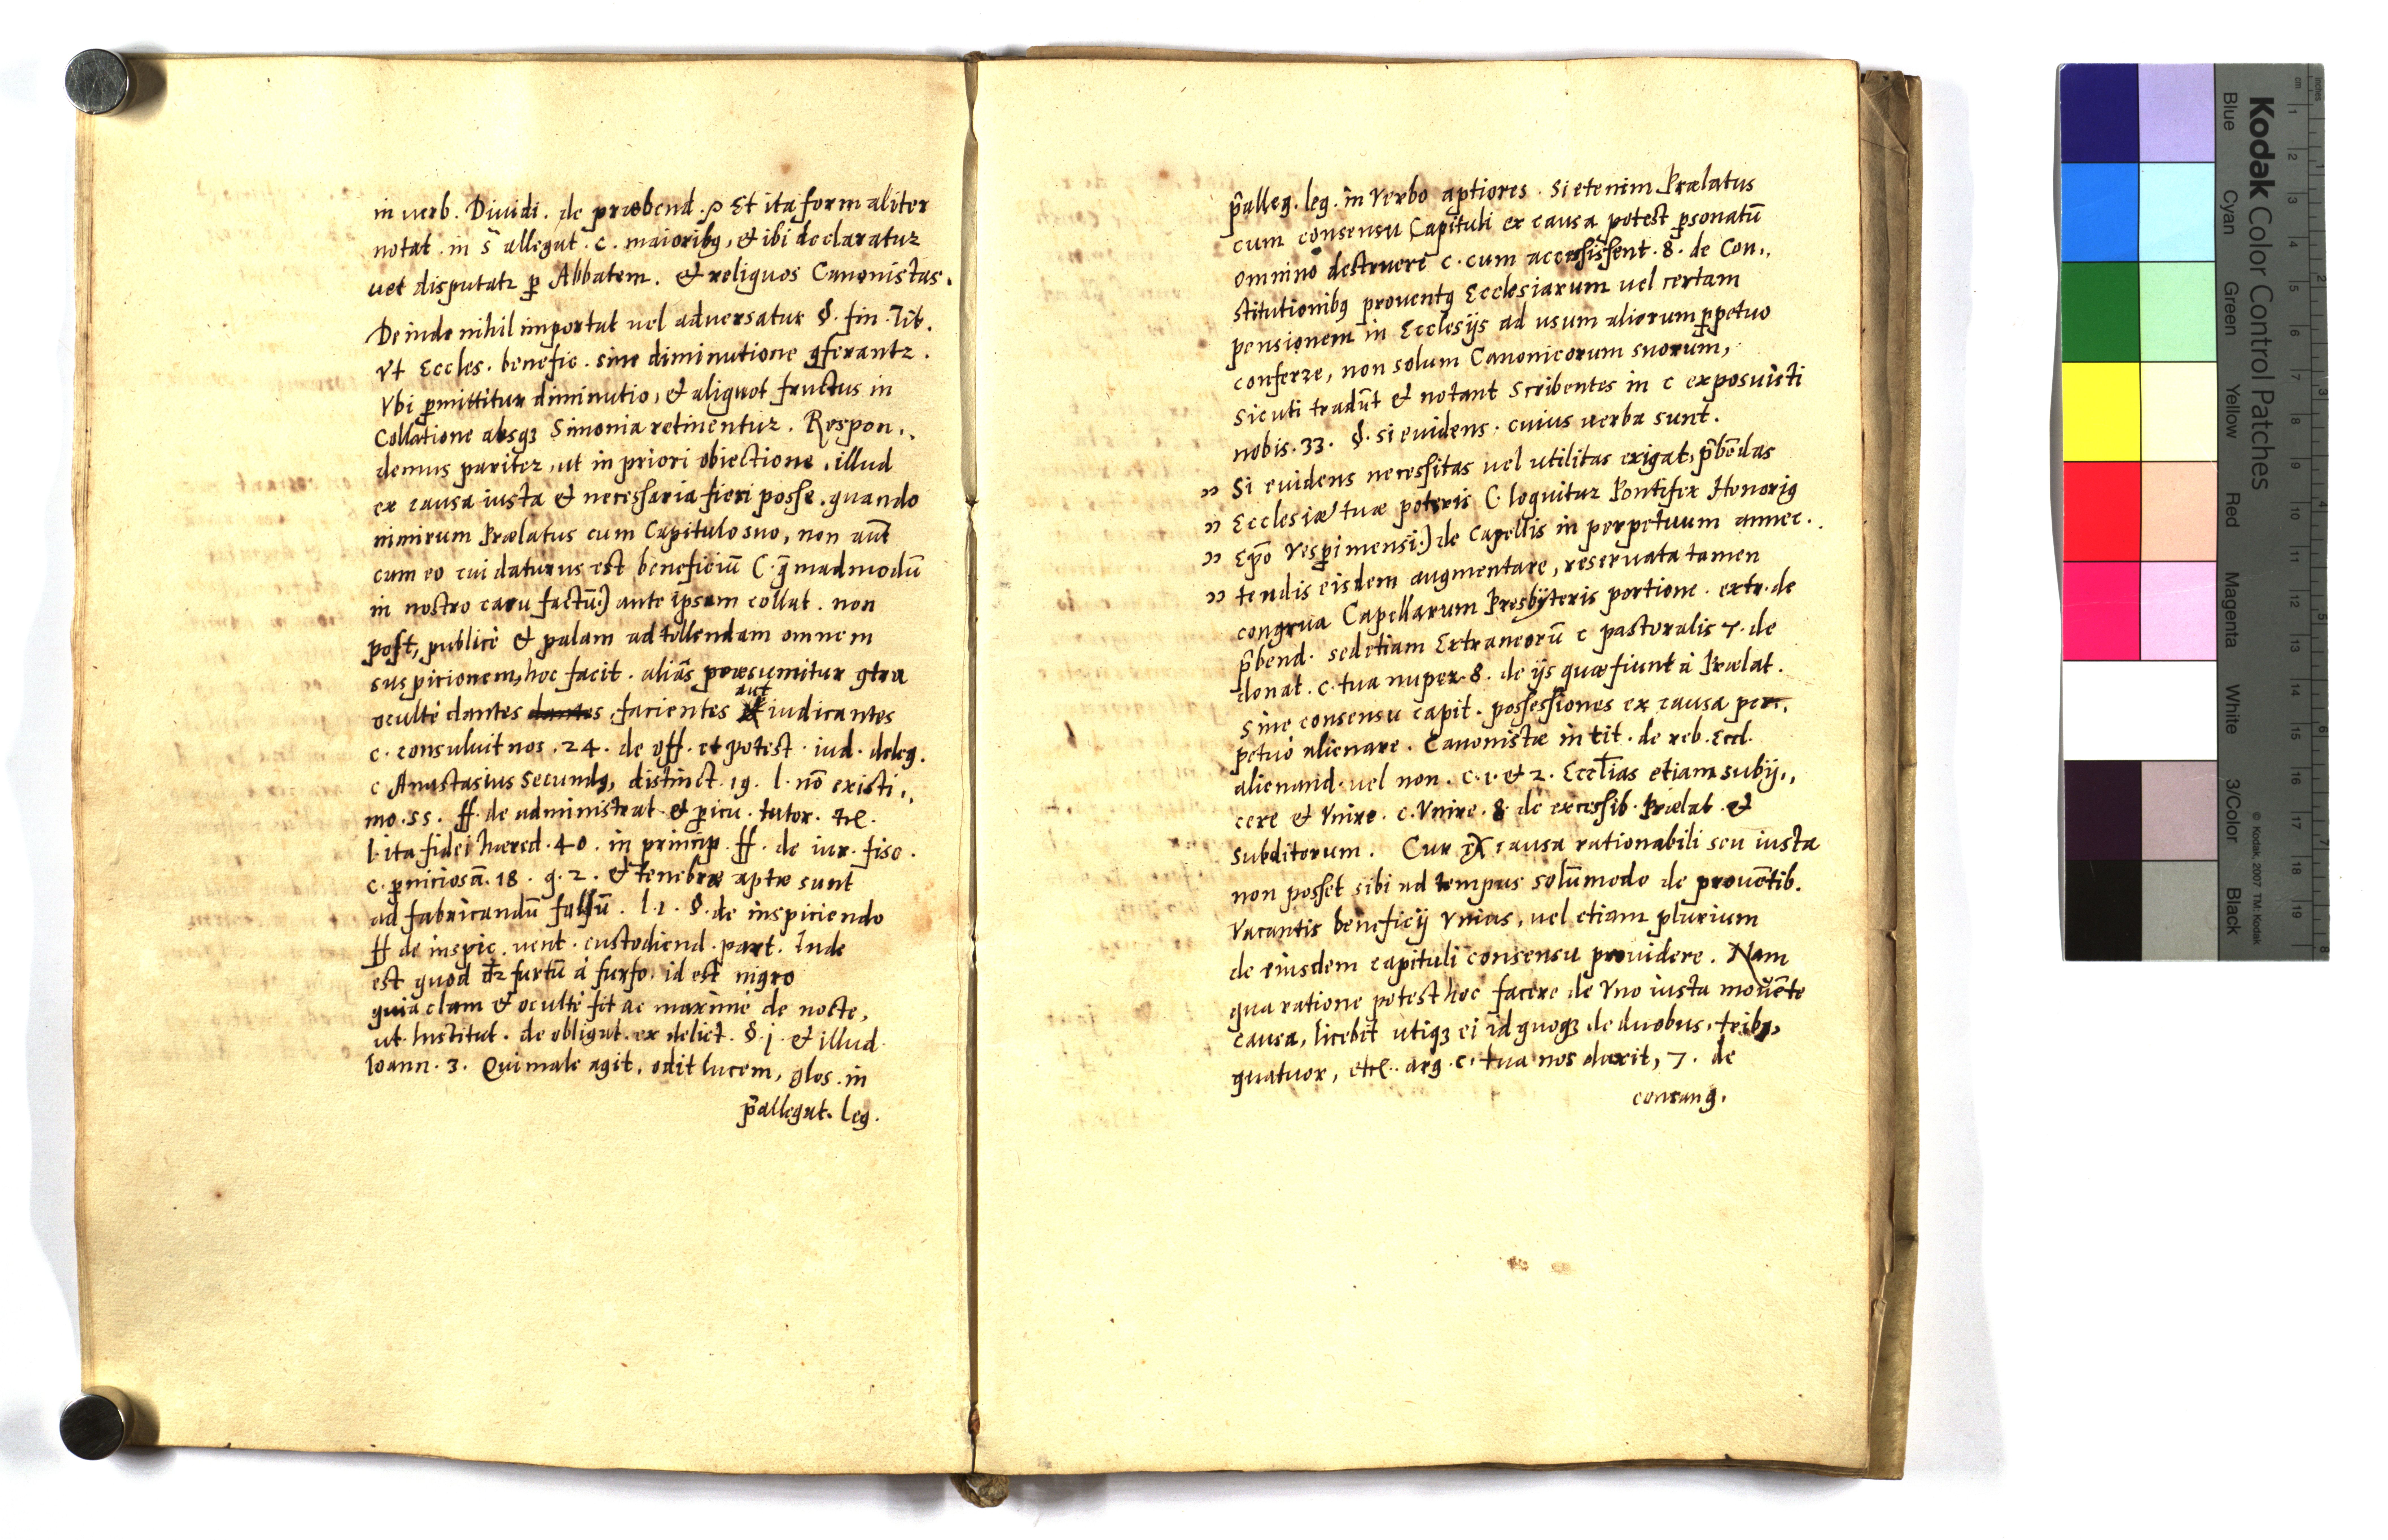 in verb. Diuidi. de præbend. Et ita formaliter
notat. in s̃ allegat. c. maioribꝫ, et ibi declaratur
uet disputatr ꝑ Abbatem. et reliquos Canonistas.
Deinde nihil importat uel aduersatur §. fin. Tit.
Vt Eccles. benefic. sine diminutione ꝯferantr.
Vbi ꝑmittitur diminutio, et aliquot fructus in
Collatione absqꝫ Simonia retinentur. Respon,,
demus pariter, ut in priori obiectione, illud
ex causa iusta et necessaria fieri posse, quando
nimirum Prælatus cum Capitulo suo, non aut̃
cum eo cui daturus est beneficiũ (: q̃madmodũ
in nostro casu factũ:) ante ipsam collat. non
post, publicè et palam ad tollendam omnem
suspicionem, hoc facit. aliàs præsumitur ꝯtra
ocultè dantes dantes, facientes aut iudicantes
c. consuluit nos. 24. de off. et potest. iud. deleg.
c Anastasius Secundꝫ, distinct. 19. l. nõ existi,,
mo. 55. ff. de administrat et ꝑicu. tutor. etc.
l. ita fidei hæred. 40. in princip. ff. de iur. fisc.
c. ꝑniciosã. 18. q. 2. et tenebræ aptæ sunt
ad fabricandũ falsũ. l. 1. §. de inspiciendo
ff de inspic. uent. custodiend. part. Inde
est quod dr̃ furtũ à furfo, id est nigro
quia clam et ocultè fit ac maximè de nocte,
ut Institut. de obligat. ex delict. §. j. et illud.
Ioann. 3. Qui male agit, odit lucem, glos. in
p̃allegat. leg.
p̃alleg. leg. in Verbo aptiores. Si etenim Prælatus
cum consensu Capituli ex causa potest ꝑsonatũ
omninò destruere c. cum accessissent. 8. de Con,,
stitutionibꝫ prouentꝫ Ecclesiarum uel certam
pensionem in Ecclesijs ad usum aliorum ꝑpetuo
conferre, non solum Canonicorum suorum,
sicuti tradũt et notant Scribentes in c exposuisti
nobis. 33. §. si euidens. cuius uerba sunt.
" Si euidens necessitas uel utilitas exigat, p̃bẽdas
" Ecclesiæ tuæ poteris (: loquitur Pontifex Honoriꝫ
" Ep̃o Vesprimensi:) de Capellis in perpetuum annec,,
" tendis eisdem augmentare, reseruata tamen
congrua Capellarum Presbyteris portione. extr. de
p̃bend. sed etiam Extraneorũ c pastoralis 7. de
donat. c. tua nuper. 8. de ijs quæ fiunt à Prælat.
sine consensu capit. possessiones ex causa per,,
petuò alienare. Canonistæ in tit. de reb. Eccl.
alienand. uel non. c. 1. et 2. Eccl̃ias etiam subij,,
cere et Vnire. c. Vnire. 8. de excessib. Prælat. et
subditorum. Cur ex causa rationabili seu iusta
non posset sibi ad tempus solũmodo de prouẽtib.
Vacantis beneficij Vnius, uel etiam plurium
de eiusdem capituli consensu prouidere. Nam
qua ratione potest hoc facere de Vno iusta mouẽte
causa, licebit utiqꝫ ei id quoqꝫ de duobus, tribꝫ,
quatuor, etc. arg. c. tua nos duxit, 7. de
consang.
Kodak Color Control Patches
© Kodak, 2007 TM: Kodak
Blue Cyan Green Yellow Red Magenta White 3/Color Black
cm 1 2 3 4 5 6 7 8 9 10 11 12 13 14 15 16 17 18 19
inches 1 2 3 4 5 6 7 8